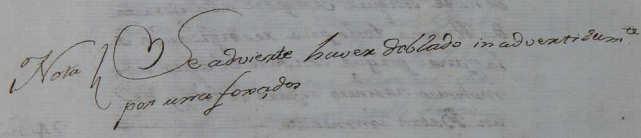 Nota Se advierte haver doblado inadvertidamte
por una foxa dos